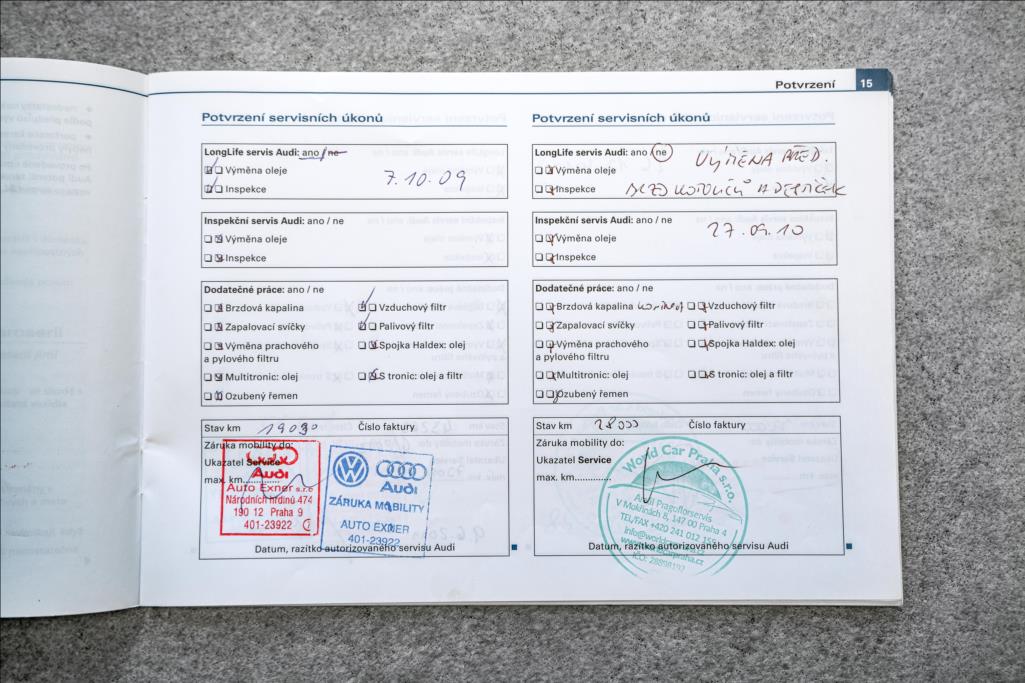 Potvrzení 15
Potvrzení servisních úkonů
LongLife servis Audi: ano / ne
Výměna oleje
7.10.09
Inspekce
Inspekční servis Audi: ano / ne
Výměna oleje
Inspekce
Dodatečné práce: ano / ne
Brzdová kapalina Vzduchový filtr
Zapalovací svíčky Palivový filtr
Výměna prachového Spojka Haldex: olej
a pylového filtru
Multitronic: olej S tronic: olej a filtr
Ozubený řemen
Stav km 19090 Číslo faktury
Záruka mobility do:
Ukazatel Service
max. km
Audi
Auto Exner s.r.o
Národních hrdinů 474
190 12 Praha 9
401-23922
Audi
ZÁRUKA MOBILITY
AUTO EXNER
401-23922
Datum, razítko autorizovaného servisu Audi
Potvrzení servisních úkonů
LongLife servis Audi: ano / ne
VÝMĚNA PŘED.
Výměna oleje
Inspekce
Inspekční servis Audi: ano / ne
27.09.10
Výměna oleje
Inspekce
Dodatečné práce: ano / ne
Brzdová kapalina Vzduchový filtr
Zapalovací svíčky Palivový filtr
Výměna prachového Spojka Haldex: olej
a pylového filtru
Multitronic: olej S tronic: olej a filtr
Ozubený řemen
Stav km 28000 Číslo faktury
Záruka mobility do:
Ukazatel Service
max. km
World Car Praha s.r.o.
V Mokřinách 8, 147 00 Praha 4
TEL/FAX +420 241 012 159
Datum, razítko autorizovaného servisu Audi